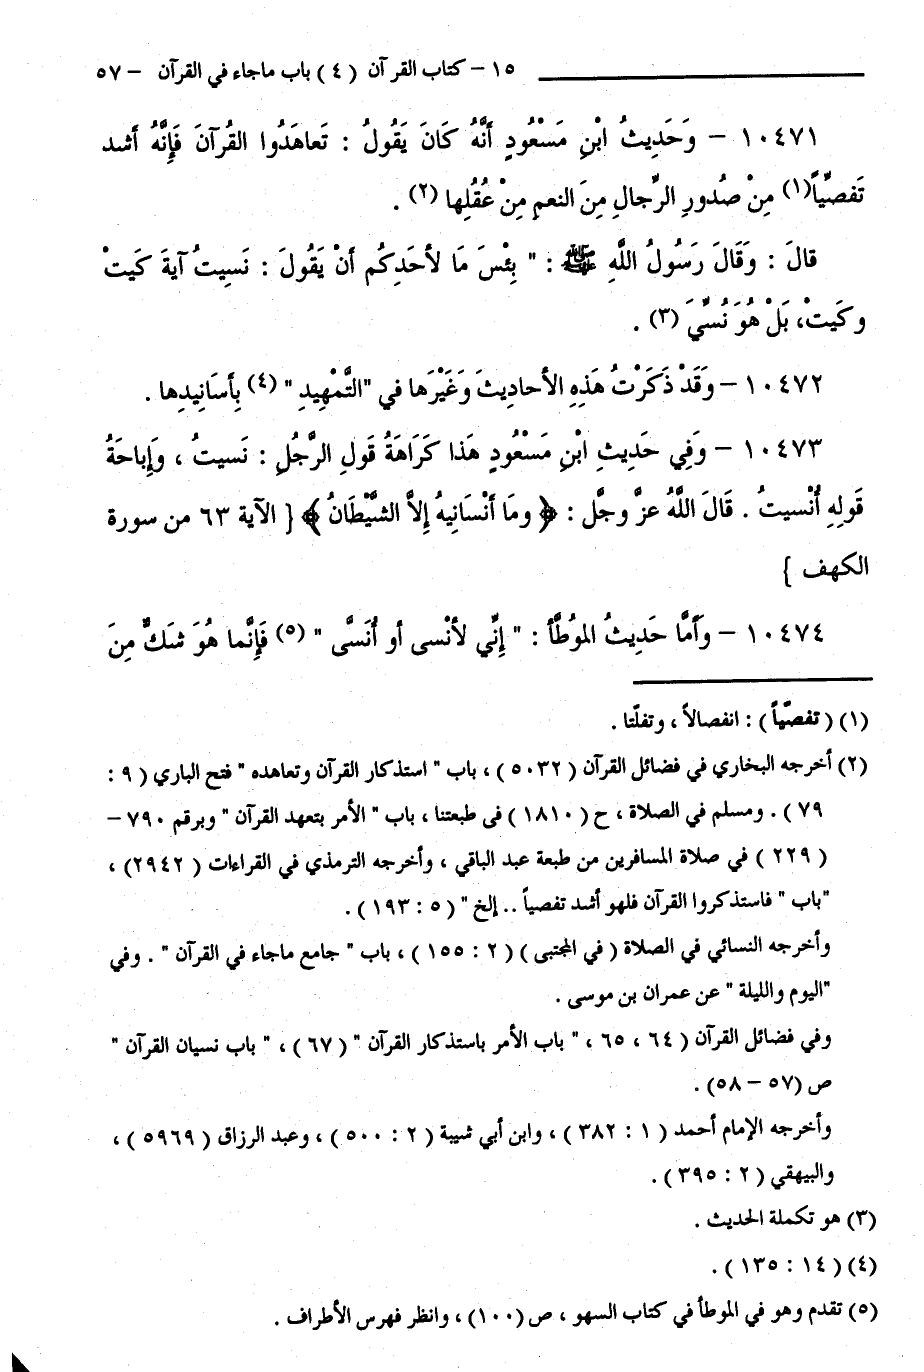 ١٥ – كتاب القرآن ( ٤ ) باب ماجاء في القرآن – ٥٧
١٠٤٧١ – وَحَدِيثُ ابْنِ مَسْعُودٍ أَنَّهُ كَانَ يَقُولُ : تَعاهَدُوا القُرآنَ فَإِنَّهُ أشد
تَفصِّياً(١) مِنْ صُدورِ الرِّجالِ مِنَ النعمِ مِنْ عُقُلِها (٢) .
قالَ : وَقَالَ رَسُولُ اللَّهِ ﷺ : " بِئْسَ مَا لأحَدِكُم أنْ يَقُولَ : نَسِيتُ آيةَ كَيتْ
وكَيتْ، بَلْ هُوَ نُسِّيَ (٣) .
١٠٤٧٢ – وَقَدْ ذَكَرْتُ هَذِهِ الأحاديثَ وَغَيْرَها في "التَّمْهِيدِ " (٤) بِأسَانِيدِها .
١٠٤٧٣ – وَفِي حَدِيثِ ابْنِ مَسْعُودٍ هَذا كَرَاهَةُ قَولِ الرَّجُلِ : نَسيتُ ، وَإِباحَةُ
قَولِهِ أُنْسيتُ . قَالَ اللَّهُ عزَّ وجلَّ : ﴿ وما أَنْسَانِيهُ إِلاَّ الشَّيْطَانُ ﴾ { الآية ٦٣ من سورة
الكهف }
١٠٤٧٤ – وَأمَّا حَدِيثُ الموُطَّأ : " إِنِّي لأنْسى أو أُنَسَّى " (٥) فَإِنَّما هُوَ شَكٌّ مِنَ
(١) ( تفصّياً ) : انفصالاً ، وتفلّتا .
(٢) أخرجه البخاري في فضائل القرآن ( ٥٠٣٢ ) ، باب " استذكار القرآن وتعاهده " فتح الباري ( ٩ :
٧٩ ) . ومسلم في الصلاة ، ح ( ١٨١٠ ) فى طبعتنا ، باب " الأمر بتعهد القرآن " وبرقم ٧٩٠ –
( ٢٢٩ ) في صلاة المسافرين من طبعة عبد الباقي ، وأخرجه الترمذي في القراءات ( ٢٩٤٢) ،
"باب " فاستذكروا القرآن فلهو أشد تفصياً .. إلخ " ( ٥ : ١٩٣ ) .
وأخرجه النسائي في الصلاة ( في المجتبى ) ( ٢ : ١٥٥ ) ، باب " جامع ماجاء في القرآن " . وفي
"اليوم والليلة " عن عمران بن موسى .
وفي فضائل القرآن ( ٦٤ ، ٦٥ ، " باب الأمر باستذكار القرآن " ( ٦٧ ) ، " باب نسيان القرآن "
ص (٥٧ – ٥٨) .
وأخرجه الإمام أحمد ( ١ : ٣٨٢ ) ، وابن أبي شيبة ( ٢ : ٥٠٠ ) ، وعبد الرزاق ( ٥٩٦٩ ) ،
والبيهقي ( ٢ : ٣٩٥ ) .
(٣) هو تكملة الحديث .
(٤) ( ١٤ : ١٣٥ ) .
(٥) تقدم وهو في الموطأ في كتاب السهو ، ص (١٠٠) ، وانظر فهرس الأطراف .